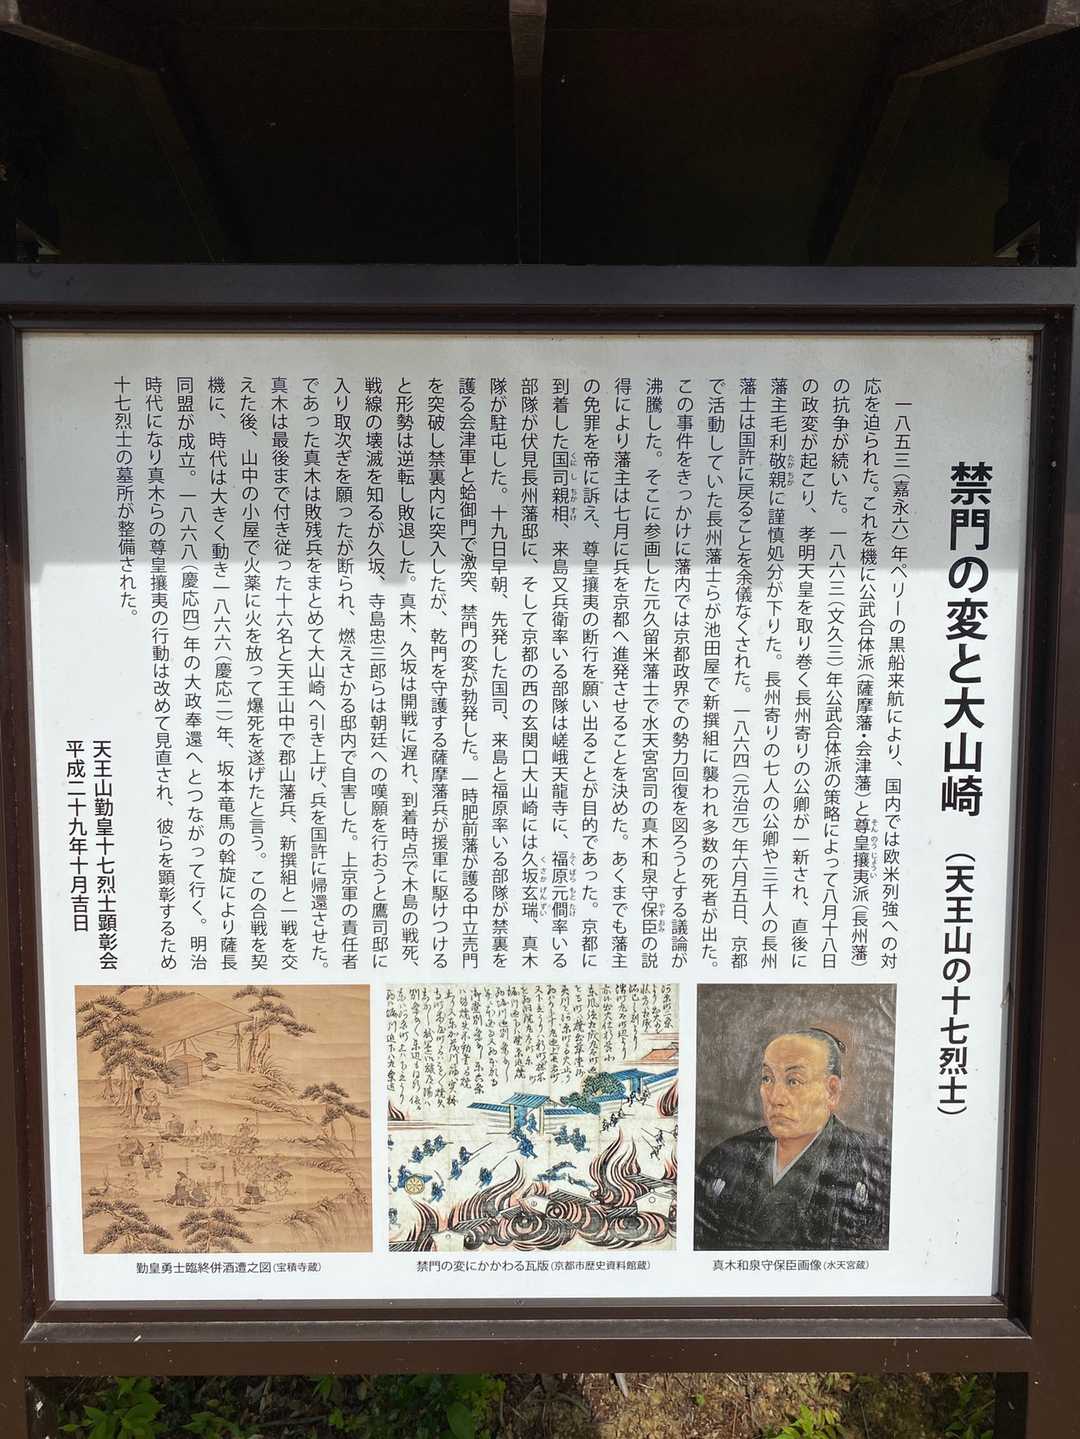 禁門の変と大山崎 (天王山の十七烈士)
一八五三(嘉永六)年ペリーの黒船来航により、国内では欧米列強への対
応を迫られた。これを機に公武合体派(薩摩藩・会津藩)と尊皇攘夷派(長州藩)
そんのうじょうい
の抗争が続いた。一八六三(文久三)年公武合体派の策略によって八月十八日
の政変が起こり、孝明天皇を取り巻く長州寄りの公卿が一新され、直後に
藩主毛利敬親に謹慎処分が下りた。長州寄りの七人の公卿や三千人の長州
たかちか
藩士は国許に戻ることを余儀なくされた。一八六四(元治元)年六月五日、京都
で活動していた長州藩士らが池田屋で新撰組に襲われ多数の死者が出た。
この事件をきっかけに藩内では京都政界での勢力回復を図ろうとする議論が
沸騰した。そこに参画した元久留米藩士で水天宮宮司の真木和泉守保臣の説
やすおみ
得により藩主は七月に兵を京都へ進発させることを決めた。あくまでも藩主
の免罪を帝に訴え、尊皇攘夷の断行を願い出ることが目的であった。京都に
到着した国司親相、来島又兵衛率いる部隊は嵯峨天龍寺に、福原元僴率いる
くにし ちかすけ ふくばら もとたけ
部隊が伏見長州藩邸に、そして京都の西の玄関口大山崎には久坂玄瑞、真木
くさか げんずい
隊が駐屯した。十九日早朝、先発した国司、来島と福原率いる部隊が禁裏を
護る会津軍と蛤御門で激突、禁門の変が勃発した。一時肥前藩が護る中立売門
を突破し禁裏内に突入したが、乾門を守護する薩摩藩兵が援軍に駆けつける
と形勢は逆転し敗退した。真木、久坂は開戦に遅れ、到着時点で木島の戦死、
戦線の壊滅を知るが久坂、寺島忠三郎らは朝廷への嘆願を行おうと鷹司邸に
入り取次ぎを願ったが断られ、燃えさかる邸内で自害した。上京軍の責任者
であった真木は敗残兵をまとめて大山崎へ引き上げ、兵を国許に帰還させた。
真木は最後まで付き従った十六名と天王山中で郡山藩兵、新撰組と一戦を交
えた後、山中の小屋で火薬に火を放って爆死を遂げたと言う。この合戦を契
機に、時代は大きく動き一八六六(慶応二)年、坂本竜馬の斡旋により薩長
同盟が成立。一八六八(慶応四)年の大政奉還へとつながって行く。明治
時代になり真木らの尊皇攘夷の行動は改めて見直され、彼らを顕彰するため
十七烈士の墓所が整備された。
天王山勤皇十七烈士顕彰会
平成二十九年十月吉日
勤皇勇士臨終併酒遭之図(宝積寺蔵)
禁門の変にかかわる瓦版(京都市歴史資料館蔵)
真木和泉守保臣画像(水天宮蔵)